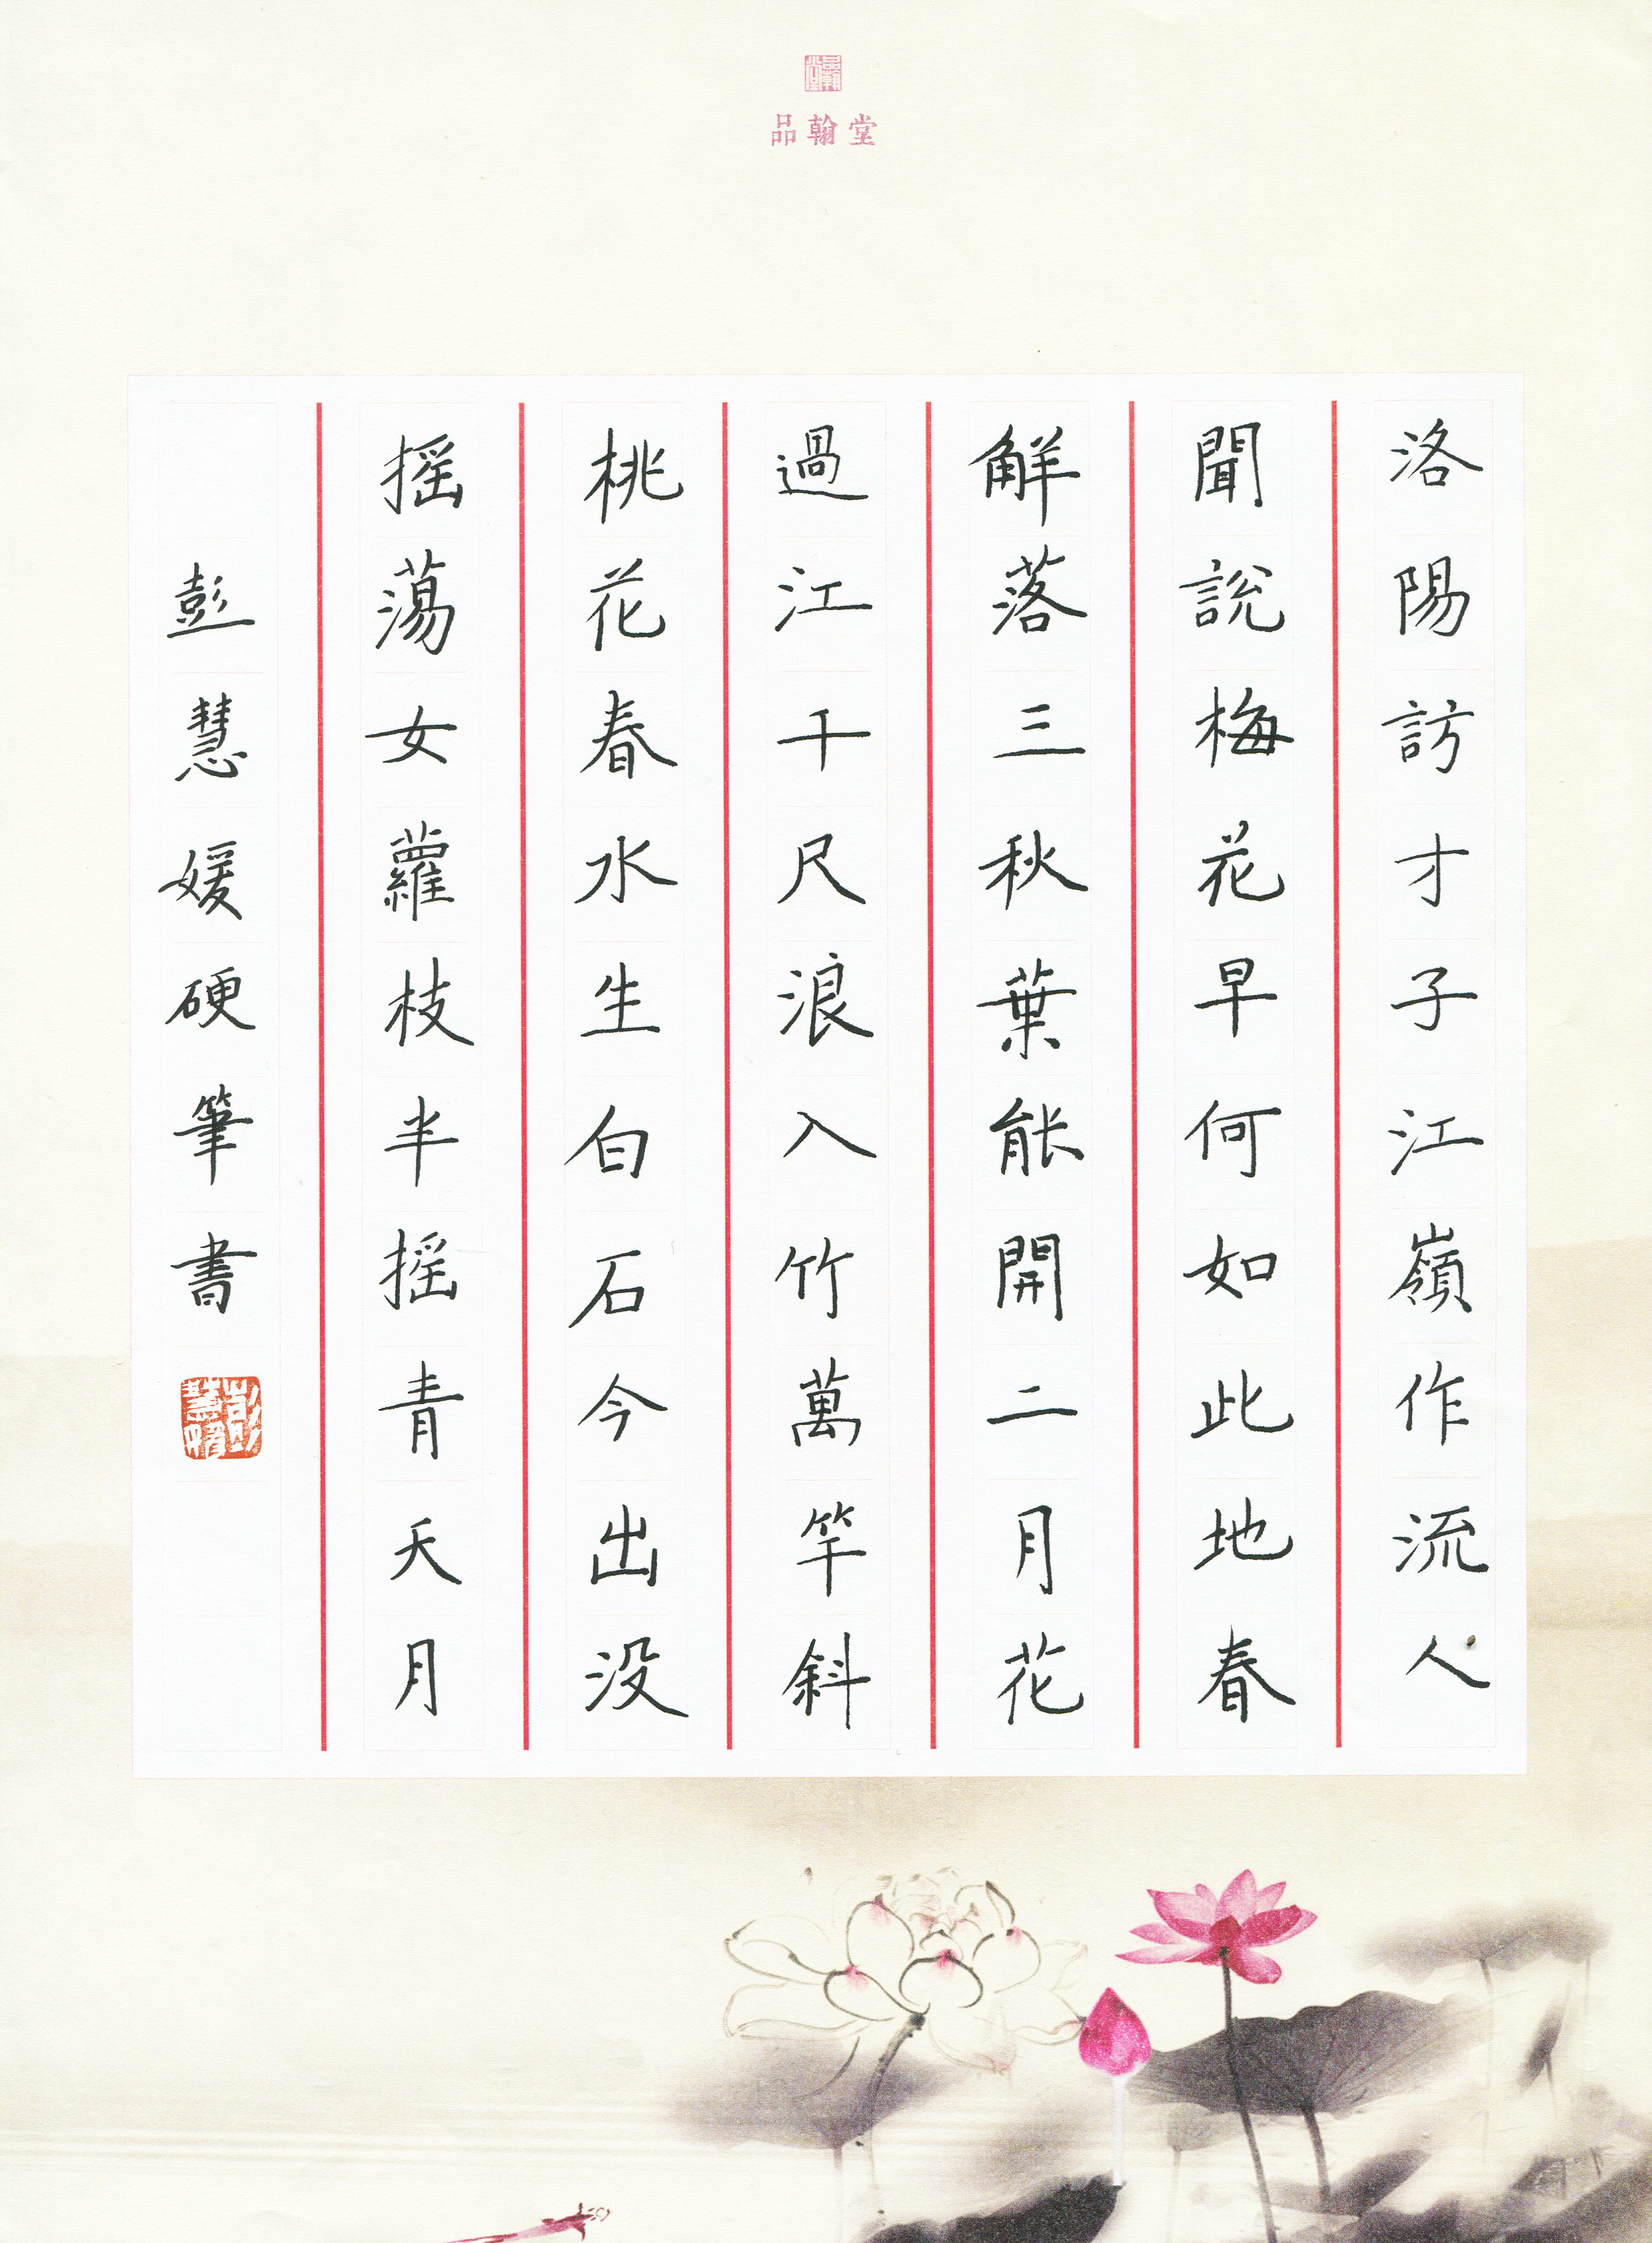 品翰堂
洛陽訪才子江嶺作流人
聞說梅花早何如此地春
解落三秋葉能開二月花
過江千尺浪入竹萬竿斜
桃花春水生白石今出没
摇蕩女蘿枝半摇青天月
彭慧媛硬筆書